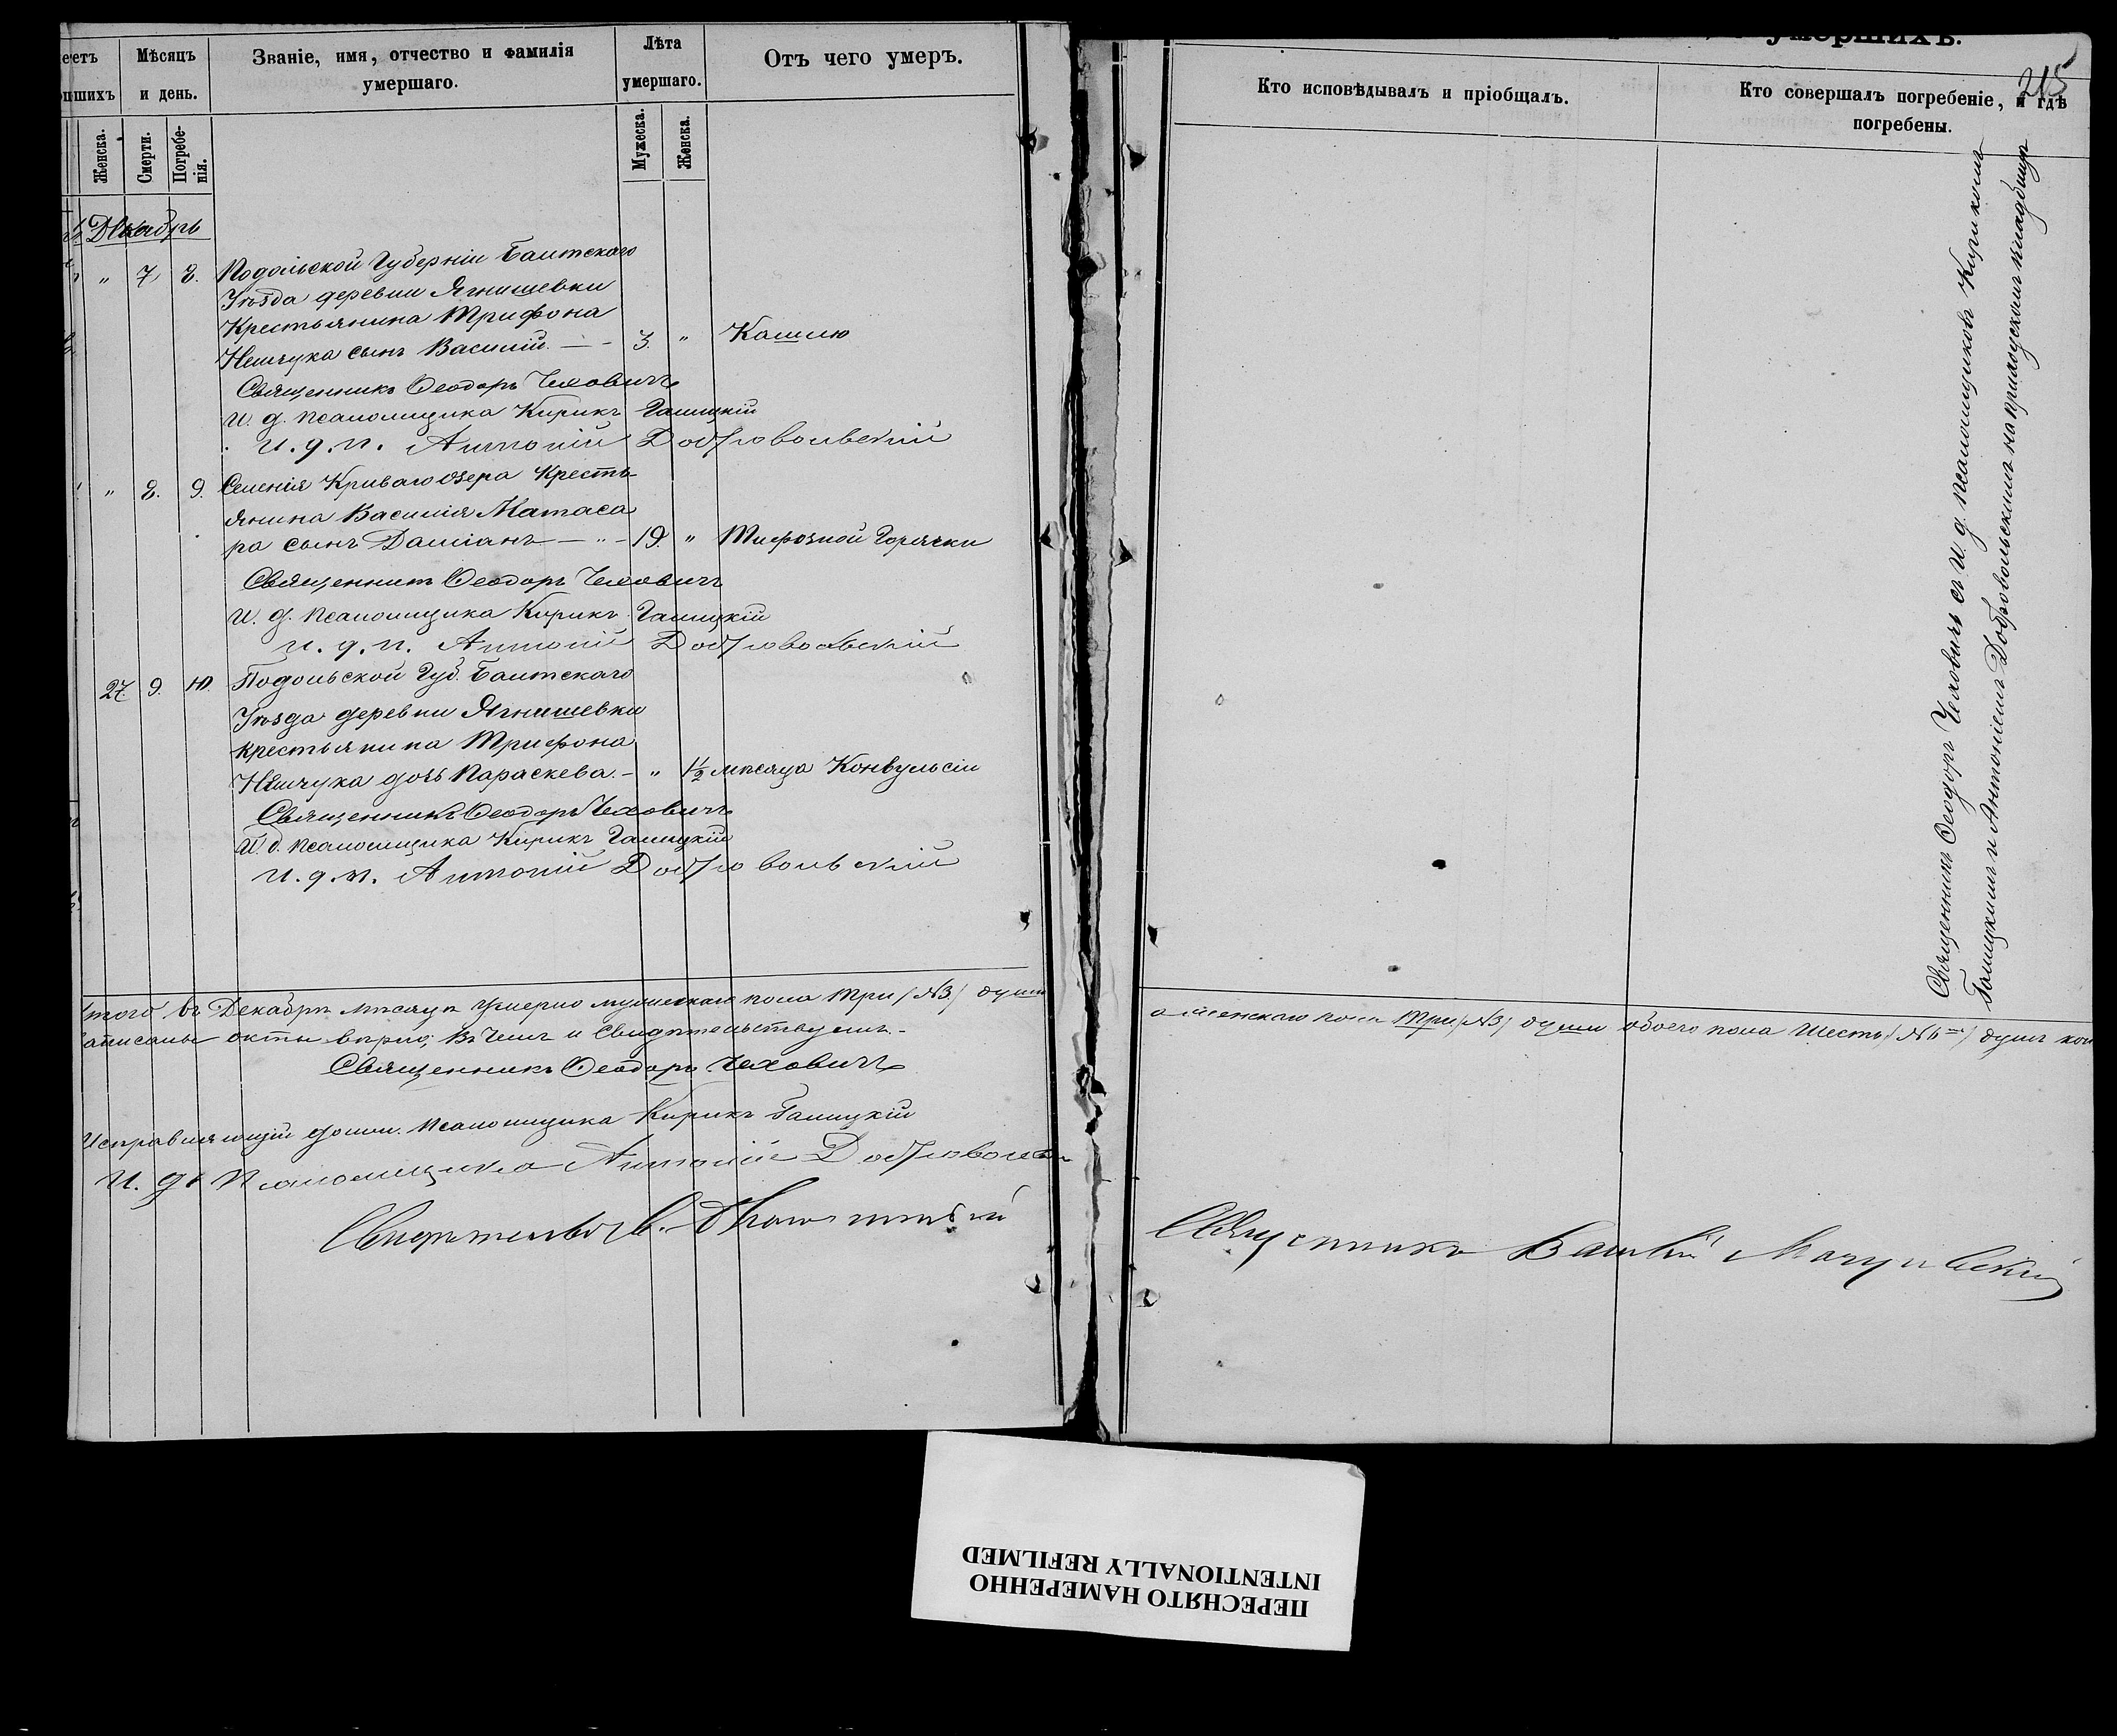 Мѣсяцъ и день.
Званіе, имя, отчество и фамилія умершаго.
Лѣта умершаго.
Отъ чего умеръ.
Женска.
Смерти.
Погребенія.
Мужеска.
Женска.
Декабрь
" 7. 8. Подольской Губерніи Балтскаго
Уѣзда деревни Ягнишевки
Крестьянина Трифона
сынъ Василій. 3. " Кашлю
Священникъ Ѳеодоръ Чеховичъ
И. д. псаломщика Кирикъ Галицкій
И. д. п. Антоній Добровольскій
" 8. 9. Селенія Криваго озера Кресть-
янина Василія Матаса
ра сынъ Даміанъ 19. " Тифозной Горячки
Священникъ Ѳеодоръ Чеховичъ
И. д. псаломщика Кирикъ Галицкій
И. д. п. Антоній Добровольскій
27. 9. 10. Подольской Губ. Балтскаго
Уѣзда деревни Ягнишевки
крестьянина Трифона
дочь Параскева. " 1½ мѣсяца Конвульсіи
Священникъ Ѳеодоръ Чеховичъ
И. д. псаломщика Кирикъ Галицкій
И. д. п. Антоній Добровольскій
того въ Декабрѣ мѣсяцѣ умерло мужескаго пола три /№3/ души
акты вѣрно, въ чемъ и свидѣтельствуемъ.-
Священникъ Ѳеодоръ Чеховичъ
Исправляющій должн. псаломщика Кирикъ Галицкій
И. д. псаломщика Антоній
умершихъ.
215
Кто исповѣдывалъ и пріобщалъ.
Кто совершалъ погребеніе, и гдѣ погребены.
Священникъ Ѳеодоръ Чеховичъ съ И. д. псаломщиковъ Кирикомъ
Галицкимъ и Антоніемъ Добровольскимъ на приходскомъ кладбищѣ
а женскаго пола три /№3/ души обоего пола шесть /№6/ душъ
Священникъ
ПЕРЕСНЯТО НАМЕРЕННО
INTENTIONALLY REFILMED